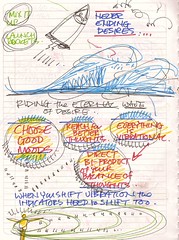 MIX IT UP
LAUNCH
ROCKETS
NEVER
ENDING
DESIRES...
RIDING the ETERNAL WAVE
OF DESIRE
CHOOSE
GOOD
MOODS
REACH for
BETTER
THOUGHTS
EVERYTHING
is
VIBRATIONAL
DIRECT
BI-PRODUCT
of YOUR
BALANCE OF
THOUGHTS
WHEN YOU SHIFT VIBRATION the
INDICATORS NEED to SHIFT TOO